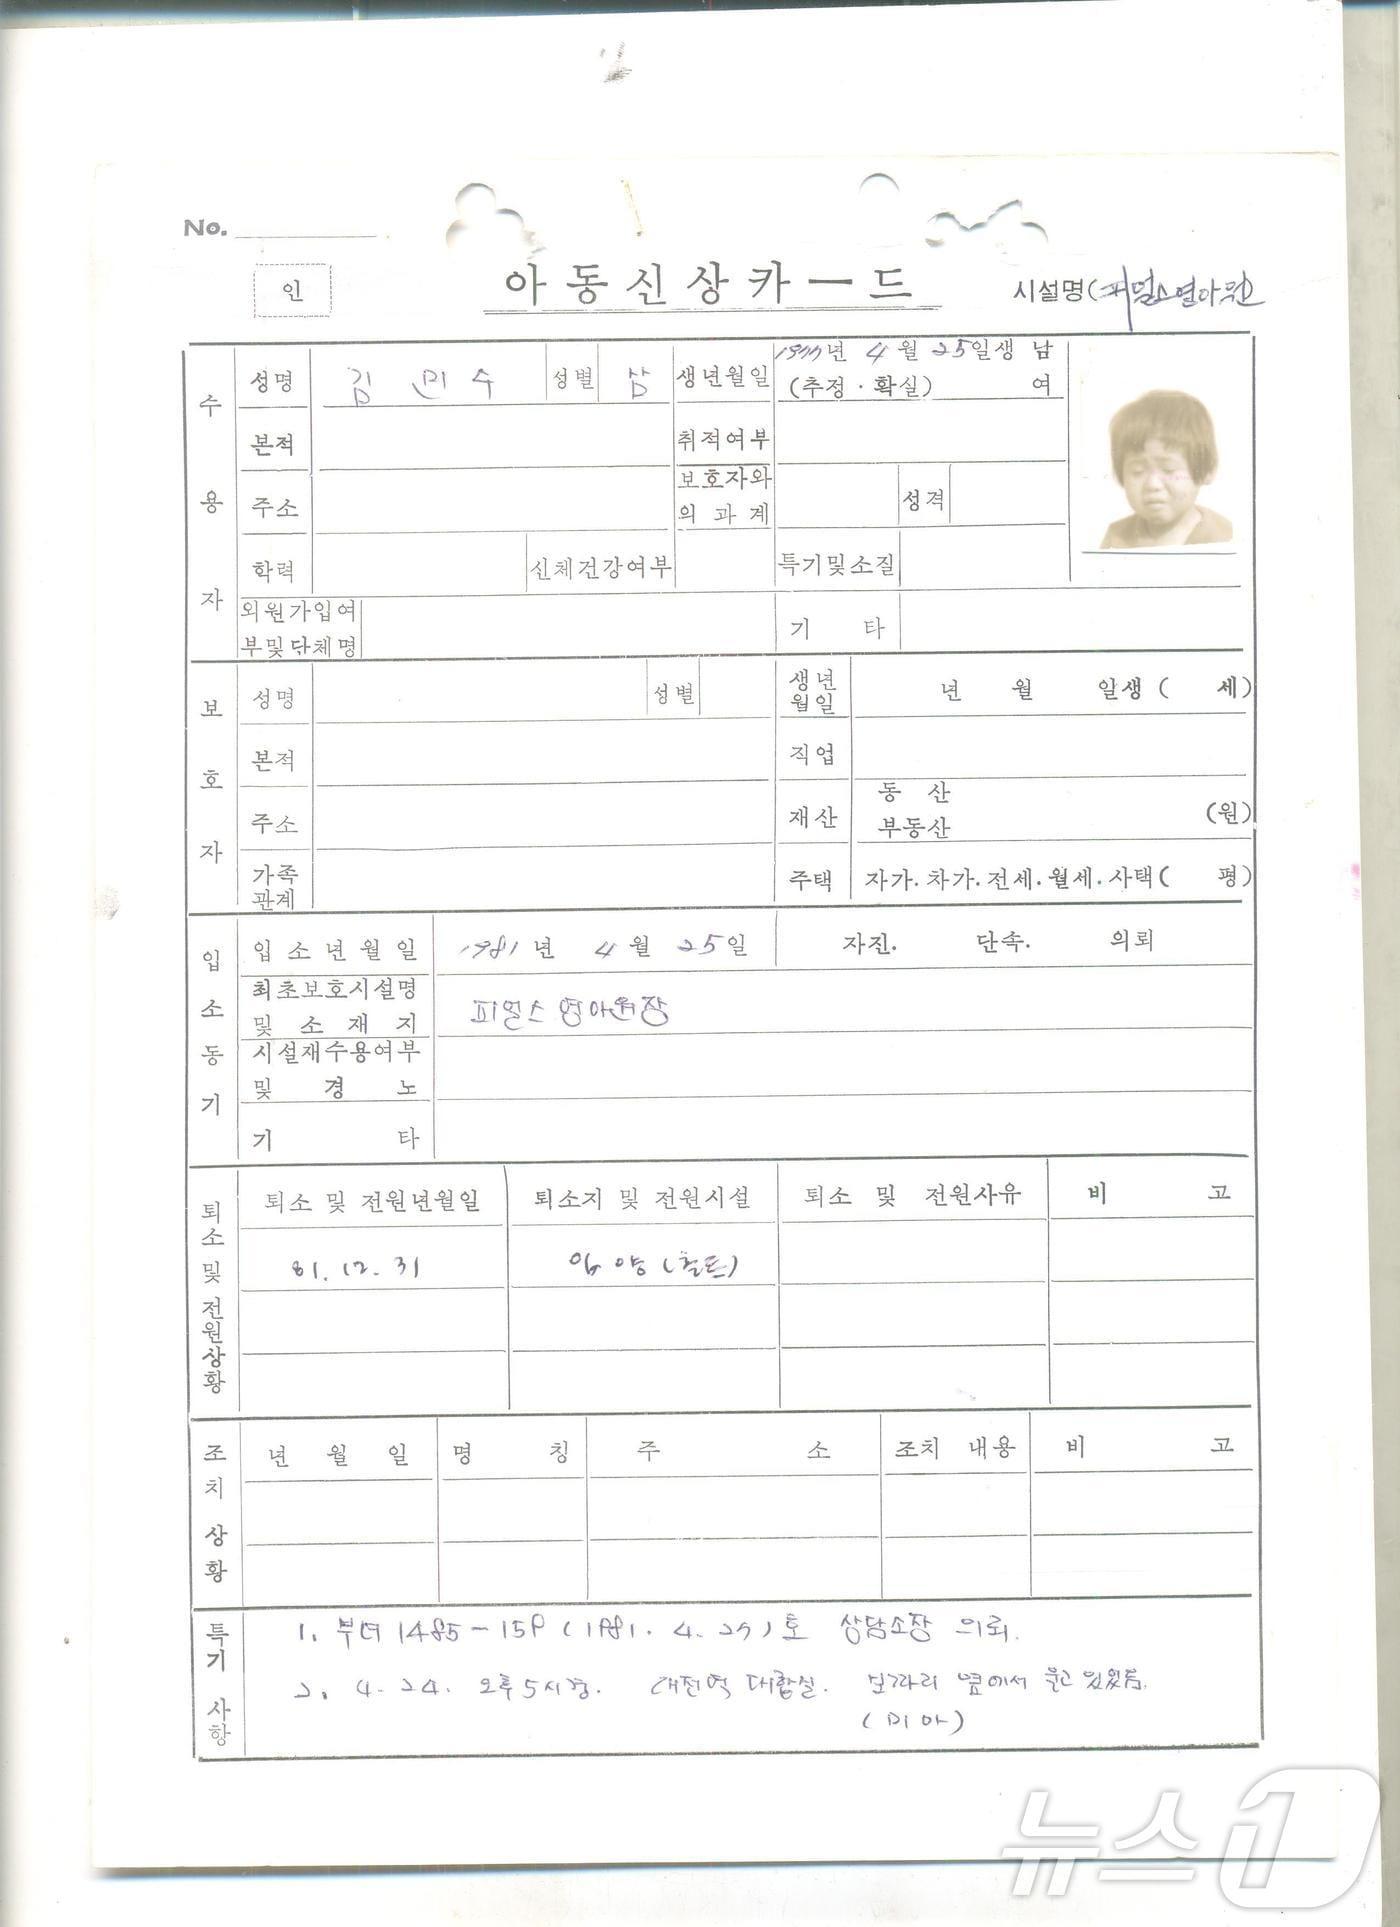 No.
인
아동신상카ー드
시설명(피얼스영아원
수용자
성명 김민수 성별 남 생년월일 1977년 4월 25일생 남
(추정·확실) 여
본적 취적여부
주소 보호자와의 과계 성격
학력 신체건강여부 특기및소질
외원가입여부및단체명 기타
보호자
성명 성별 생년월일 년 월 일생( 세)
본적 직업
주소 재산 동산 부동산 (원)
가족관계 주택 자가·차가·전세·월세·사택( 평)
입소동기
입소년월일 1981년 4월 25일 자진. 단속. 의뢰
최초보호시설명및소재지 피얼스영아원장
시설재수용여부및경노
기타
퇴소및전원상황
퇴소 및 전원년월일 퇴소지 및 전원시설 퇴소 및 전원사유 비고
81.12.31 입양(홀트)
조치상황
년월일 명칭 주소 조치내용 비고
특기사항
1. 부녀 1485-158 (1981. 4. 27)호 상담소장 의뢰.
2. 4. 24. 오후 5시경. 대전역 대합실. 보따리 옆에서 울고 있었음.
(미아)
뉴스1